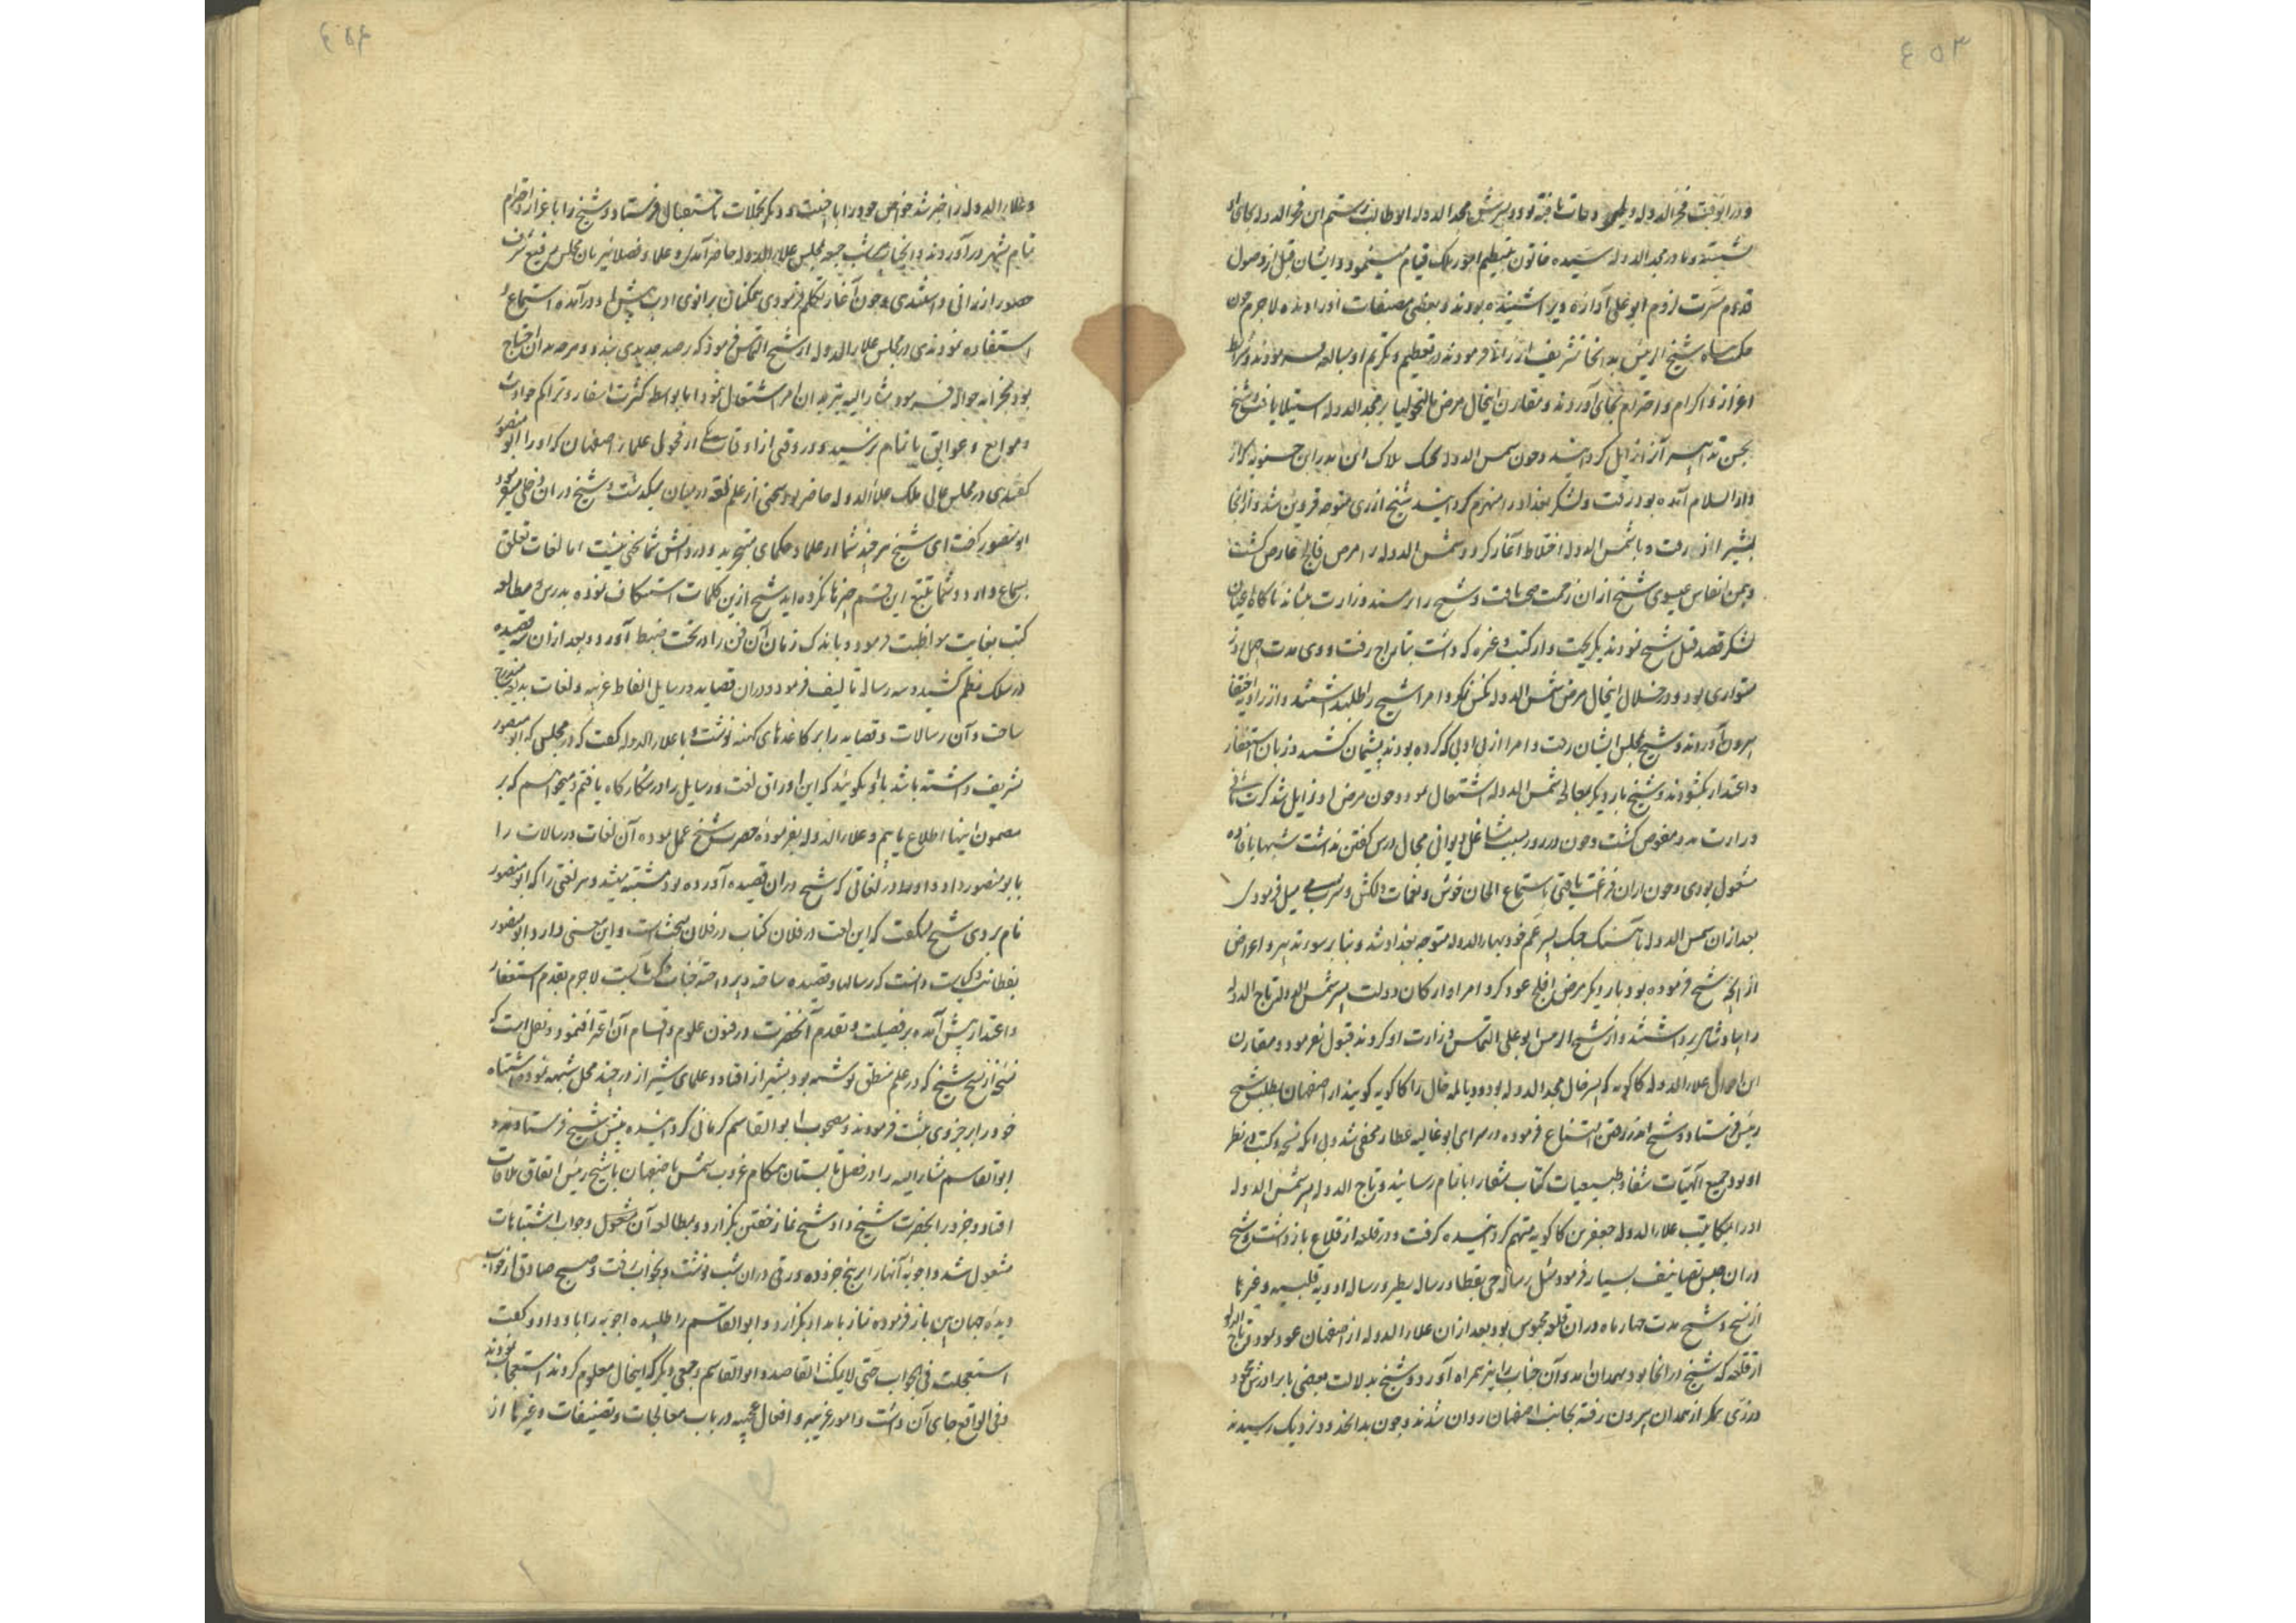 و در آن وقت فخر الدوله دیلمی وفات یافته بود و پسرش مجد الدوله ابو طالب رستم ابن فخر الدوله بجای او
نشسته و مادر مجد الدوله سیده خاتون بتنظیم امور ملک قیام مینمود و ایشان قبل از وصول
قدوم مسرت لزوم ابو علی آوازه ویرا شنیده بودند و بعضی مصنفات او را دیده لاجرم چون
شیخ الرئیس بدانجا تشریف ارزانی فرمودند در تعظیم و تکریم او مبالغه فرمودند و شرایط
اعزاز و اکرام و احترام بجای آوردند و مقارن اینحال مرض مالیخولیا بر مجد الدوله استیلا یافت و شیخ
بحسن تدابیر آنرا زایل گردانید و چون شمس الدوله بجنک هلاک ابن بدر ابن حسنویه که از
دار السلام آمده بود رفت و لشکر بغداد را منهزم گردانید شیخ از ری متوجه قزوین شد و از آنجا
رفت و با شمس الدوله اختلاط آغاز کرد و شمس الدوله را مرض قولنج عارض گشت
و بیمن انفاس عیسوی شیخ از آن زحمت صحت یافت و شیخ را بر مسند وزارت نشاند ناگاه اعیان
لشکر قصد قتل شیخ نمودند بگریخت و از کتب و غیره که داشت بتاراج رفت و وی مدت چهل روز
متواری بود و در خلال اینحال مرض شمس الدوله نکس کرد و امرا شیخ را طلب داشتند و از زاویه اختفا
بیرون آوردند و شیخ بمجلس ایشان رفت و امرا از بی ادبی که کرده بودند پشیمان گشتند و زبان استغفار
و اعتذار بگشودند و شیخ بار دیگر بمعالجه شمس الدوله اشتغال نمود و چون مرض او زایل شد کرت ثانی
وزارت بدو مفوض گشت و چون در روز بسبب مشاغل دیوانی مجال درس گفتن نداشت شبها بافاده
مشغول بودی و چون از آن فراغت یافتی باستماع الحان خوش و نغمات دلکش و شرب می میل فرمودی
بعد از آن شمس الدوله بآهنگ جنگ پسر عم خود بهاء الدوله متوجه بغداد شد و بنا بر سوء تدبیر و اعراض
از آنچه شیخ فرموده بود بار دیگر مرض قولنج عود کرد و امرا و ارکان دولت پسر شمس الدوله تاج الدوله
را بپادشاهی برداشتند و از شیخ الرئیس ابو علی التماس وزارت او کردند قبول نفرمود و مقارن
این احوال علاء الدوله کاکویه که پسر خال مجد الدوله بود و دیالمه خال را کاکویه گویند از اصفهان بطلب شیخ
رئیس فرستاد و شیخ از رفتن امتناع فرموده در سرای ابو غالب عطار مخفی شد و بی آنکه نسخه و کتب در نظر
او بود جمیع الهیات شفا و طبیعیات کتاب شفا را باتمام رسانید و تاج الدوله پسر شمس الدوله
او را بمکاتبت علاء الدوله جعفر بن کاکویه متهم گردانیده گرفت و در قلعه از قلاع باز داشت و شیخ
در آن حبس تصانیف بسیار فرمود مثل رساله حی یقظان و رساله طیر و رساله ادویه قلبیه و غیرها
از نسخ و شیخ مدت چهار ماه در آن قلعه محبوس بود بعد از آن علاء الدوله از اصفهان عود نمود و تاج الدوله
از قلعه که شیخ در آنجا بود بهمدان آمد و آن جناب را نیز همراه آورد و شیخ بدلالت بعضی با برادرش محمود
در زی دیگر از همدان بیرون رفته بجانب اصفهان روان شدند و چون بدان حدود نزدیک رسیدند
و علاء الدوله را خبر شد خواص خود را با جنیبت و دیگر تجملات باستقبال فرستاد و شیخ را با عزاز و احترام
تمام بشهر در آوردند و آنجناب شب جمعه بمجلس علاء الدوله حاضر آمدی و علما و فضلا نیز بان مجلس رفیع شرف
حضور ارزانی داشتندی و چون آغاز تکلم فرمودی همگنان بزانوی ادب پیش او در آمده استماع و
استفاده نمودندی در مجلس علاء الدوله از شیخ التماس فرمود که رصد جدیدی بندد و هر چه بدان احتیاج
بود بخزانه حواله فرمود مشار الیه نیز بدان امر اشتغال نمود اما بواسطه کثرت اسفار و تراکم حوادث
و موانع و عوایق باتمام نرسید و در وقتی از اوقات یکی از فحول علماء اصفهان که او را ابو منصور
گفتندی در مجلس عالی ملک علاء الدوله حاضر بود سخنی از علم لغت در میان میگذشت و شیخ در آن دخلی میفرمود
ابو منصور گفت ای شیخ هر چند شما از علما و حکمای متبحرید و در دانش شما سخنی نیست اما لغات تعلق
بسماع دارد و شما تتبع این قسم چیزها نکرده اید شیخ ازین کلمات استنکاف نموده بدرس و مطالعه
کتب بغایت مواظبت فرمود و باندک زمان آن فن را در تحت ضبط آورد و بعد از آن سه قصیده
در سلک نظم کشید و سه رساله تالیف فرمود و در آن قصاید و رسایل الفاظ غریبه و لغات بدیعه مندرج
ساخت و آن رسالات و قصاید را بر کاغذهای کهنه نوشت و با علاء الدوله گفت که در مجلس که ابو منصور
تشریف داشته باشد باو بگوئید که این اوراق لغت و رسایل را در شکار گاه یافتم و میخواهم که بر
مضمون اینها اطلاع یابم و علاء الدوله بفرموده حضرت شیخ عمل نموده آن لغات و رسالات را
بابو منصور داد و او در لغاتی که شیخ در آن قصیده آورده بود مشتبه میشد و هر لغتی را که ابو منصور
نام بردی شیخ میگفت که این لغت در فلان کتاب در فلان مبحث است و این معنی دارد ابو منصور
بفطانت و کیاست دانست که رسالها و قصیده ساخته و پرداخته جناب حکمت مآبست لاجرم بقدم استغفار
و اعتذار پیش آمده بر فضیلت و تقدم آنحضرت در فنون علوم و اقسام آن اعتراف نمود و نقل است که
نسخه از نسخ شیخ که در علم منطق نوشته بود بشیراز افتاد و علمای شیراز در چند محل شبهه نموده اشتباه
خود را بر جزوی ثبت فرمودند و مصحوب ابو القاسم کرمانی گردانیده پیش شیخ فرستادند و
ابو القاسم مشار الیه را در فصل تابستان هنگام غروب شمس باصفهان با شیخ رئیس اتفاق ملاقات
افتاد و جزو را بحضرت شیخ داد و شیخ نماز خفتن بگزارد و بمطالعه آن مشغول و جواب اشتباهات
مشغول شد و اجوبه آنها را بر پنج جزو ده ورقی در آن شب نوشت و بخواب رفت و صبح صادق از خواب
دیده جهان بین باز فرموده نماز بامداد بگزارد و ابو القاسم را طلبیده اجوبه را باو داد و گفت
استعجلت فی الجواب حتی لا یمکث القاصد و ابو القاسم و جمعی دیگر که اینحال معلوم کردند استعجاب نمودند
و فی الواقع جای آن داشت و امور غریبه و افعال عجیبه در باب معالجات و تصنیفات و غیرها از